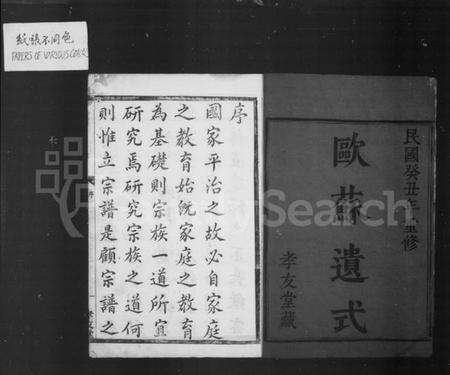 紙張不同色
PAPERS OF VARIOUS COLOR
民國癸丑年重修
歐蘇遺式
孝友堂藏
序
國家平治之故必自家庭
之教育始旣家庭之教育
為基礎則宗族一道所宜
研究焉研究宗族之道何
則惟立宗譜是顧宗譜之
Search